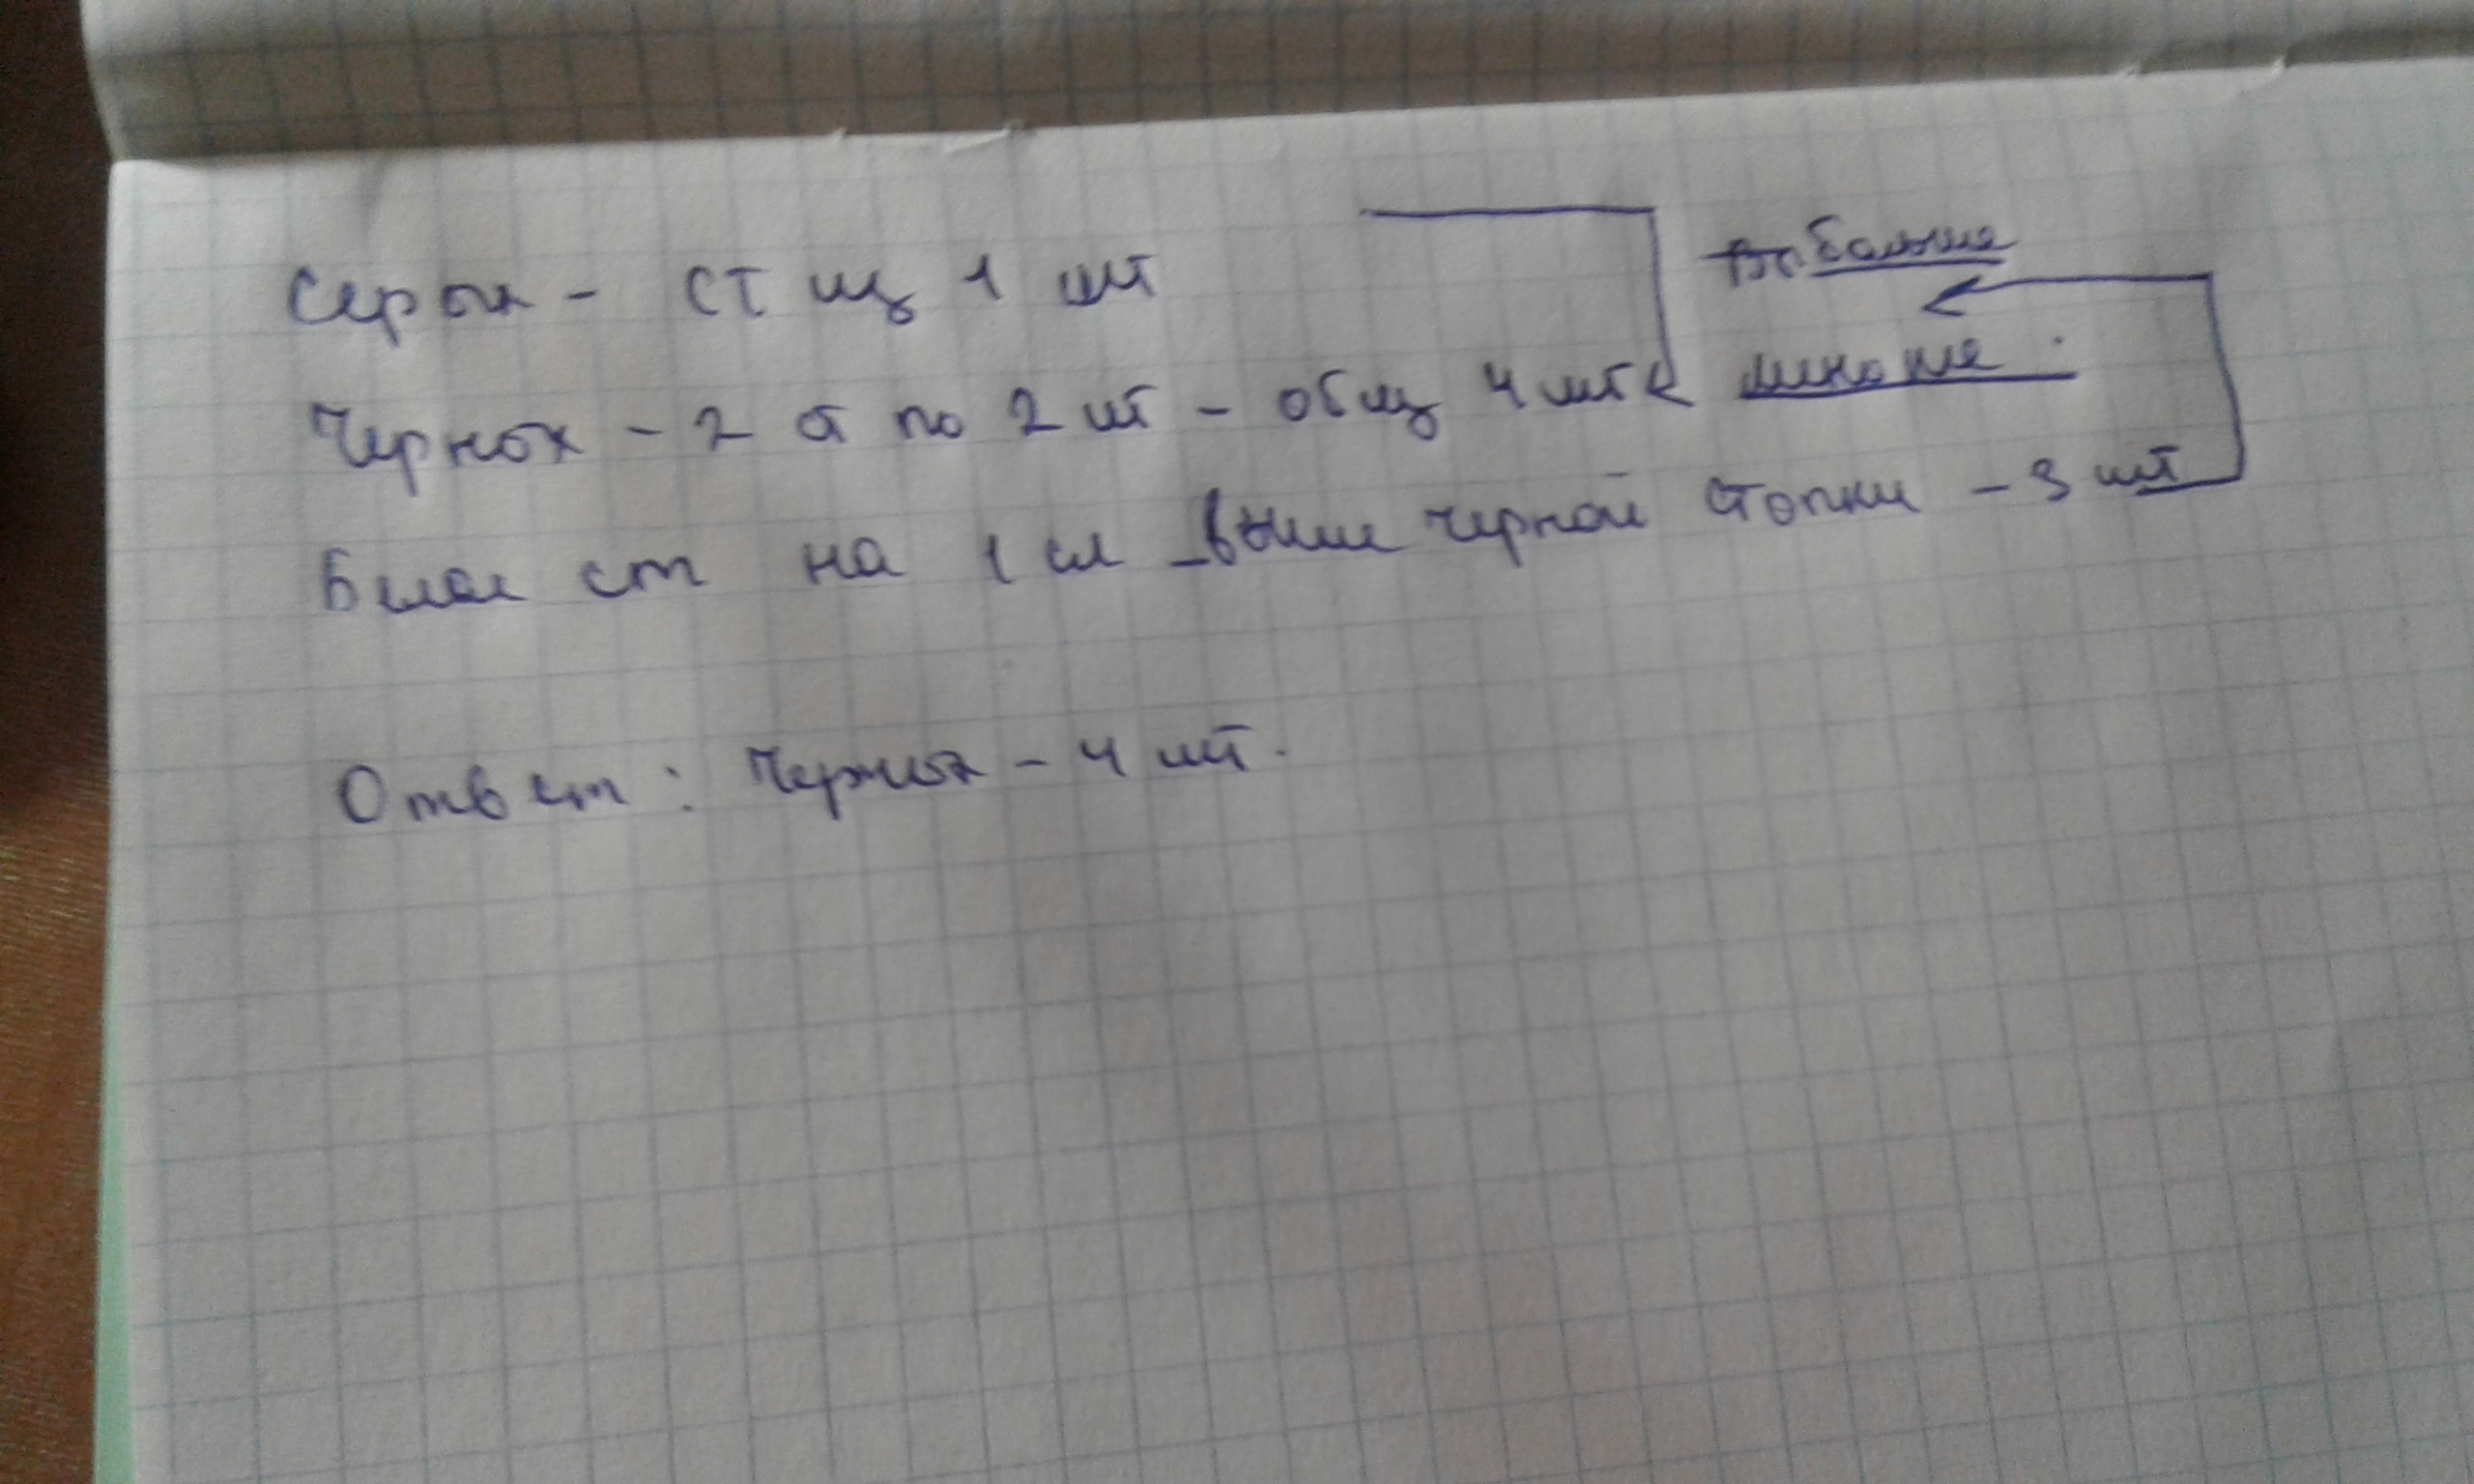 Серых - ст из 1 шт
больше
Черных - 2 ст по 2 шт - общ 4 шт меньше
Белая ст на 1 см выше черной стопки - 3 шт
Ответ: Черных - 4 шт.